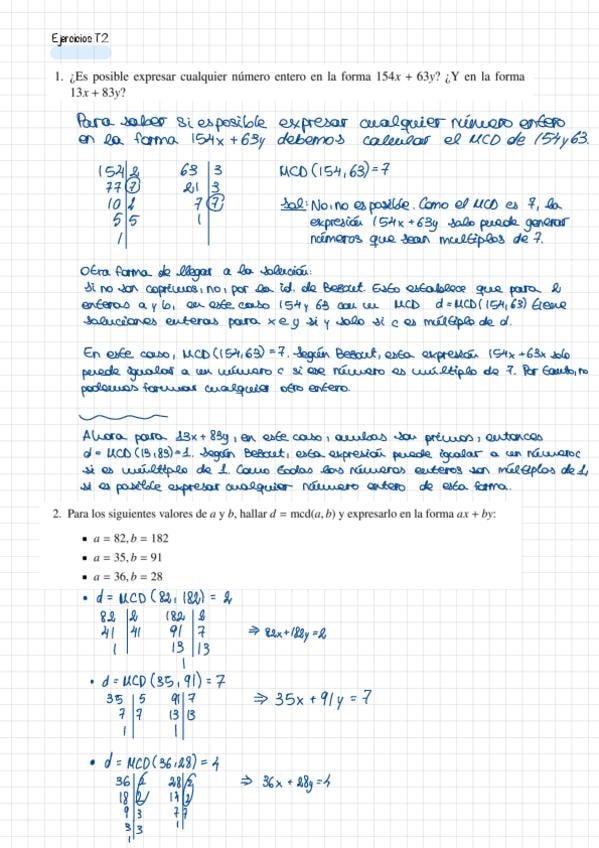 Ejercicios T2
1. ¿Es posible expresar cualquier número entero en la forma 154x + 63y? ¿Y en la forma
13x + 83y?
Para saber si es posible expresar cualquier número entero
en la forma 154x+63y debemos calcular el MCD de 154 y 63.
154 | 2 63 | 3 MCD(154,63)=7
77 | 7 21 | 3
Sol: No, no es posible. Como el MCD es 7, la
7 | 7
5 | 5 1 expresión 154x+63y solo puede generar
1 números que sean multiplos de 7.
Otra forma de llegar a la solución:
Si no son coprimos, no, por la id. de Bezout. Esto establece que para 2
enteros a y b, en este caso 154 y 63 con un MCD d=MCD(154,63) tiene
soluciones enteras para x e y si y solo si c es múltiplo de d.
En este caso, MCD(154,63)=7. Según Bezout, esta expresión 154x+63x solo
puede igualar a un número c si ese número es múltiplo de 7. Por tanto, no
podemos formar cualquier otro entero.
Ahora para 13x+83y, en este caso, ambos son primos, entonces
d=MCD(13,83)=1. Según Bezout, esta expresión puede igualar a un número c
si es múltiplo de 1. Como todos los números enteros son múltiplos de 1,
si es posible expresar cualquier número entero de esta forma.
2. Para los siguientes valores de a y b, hallar d = mcd(a, b) y expresarlo en la forma ax + by:
▪ a = 82, b = 182
▪ a = 35, b = 91
▪ a = 36, b = 28
• d = MCD(82, 182) = 2
82 | 2 182 | 2
41 | 41 91 | 7 ⇒ 82x+182y=2
1 13 | 13
1
• d = MCD(35, 91) = 7
35 | 5 91 | 7 ⇒ 35x + 91y = 7
7 | 7 13 | 13
1 1
• d = MCD(36,28) = 4
36 | 2 28 | 2 ⇒ 36x + 28y = 4
18 | 2 14 | 2
9 | 3 7 | 7
3 | 3 1
1